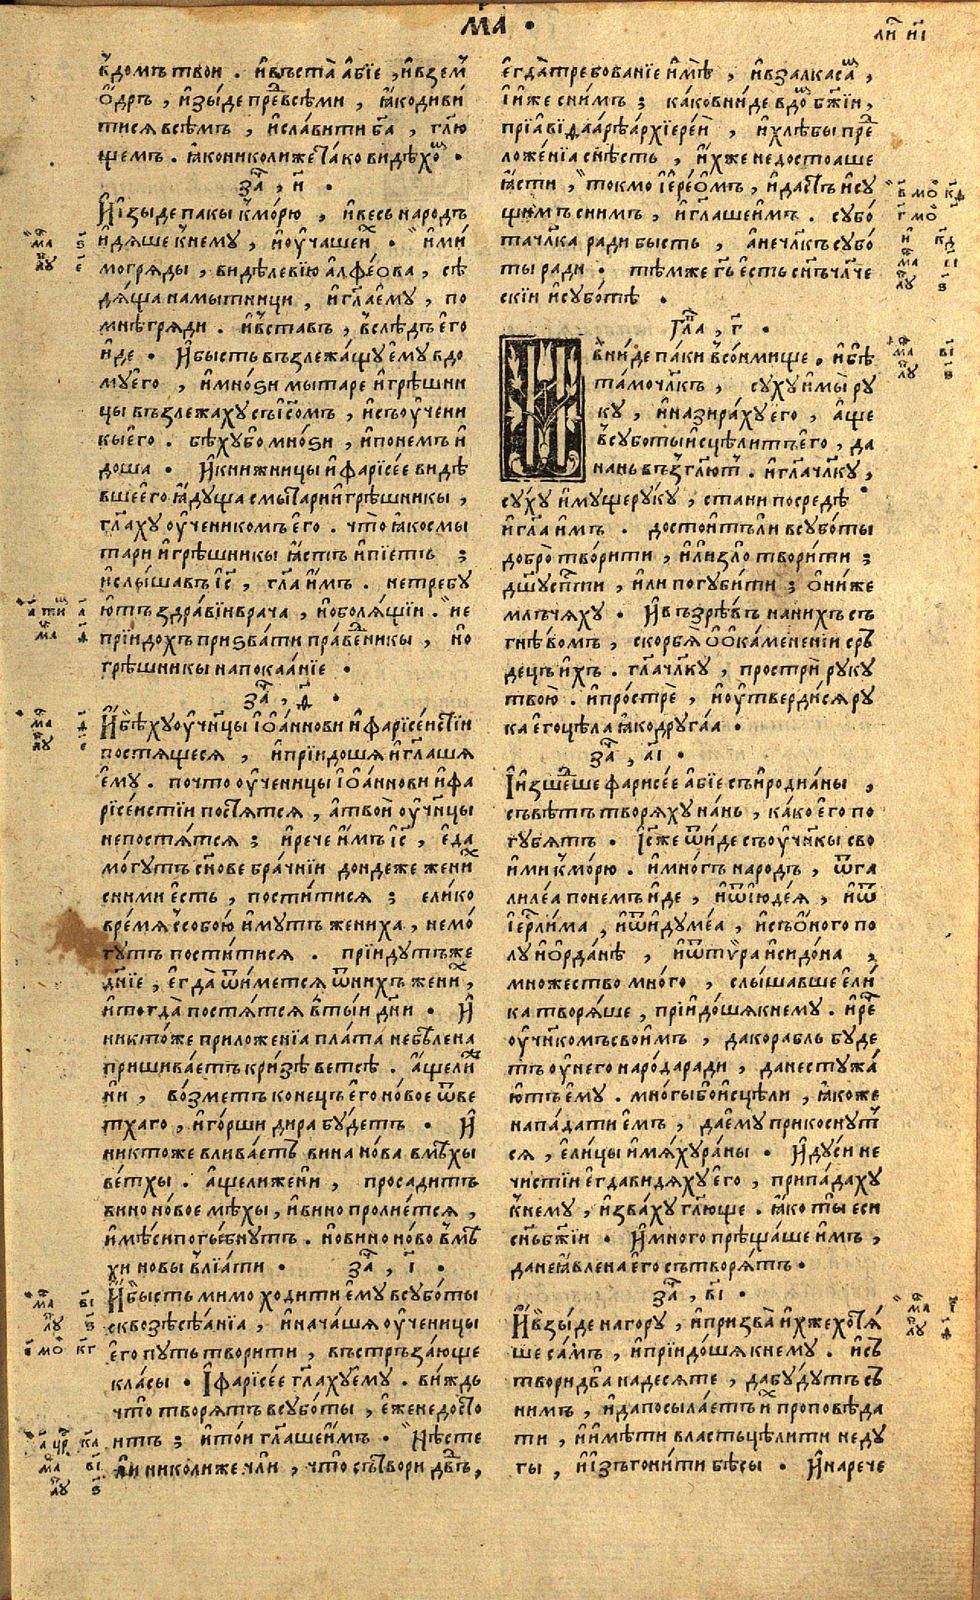 МА ·
ли́ и҃і
в̾домъ твои . и҆въста̀ а҆бїе , и҆взем̾
о҆дръ , и҆зы́де пре́всѣми , ꙗ҆кодиви́
тися всѣмъ , и҆сла́вити б҃а , гл҃ю
щемъ . ꙗ҆кониколиже та́ко видѣхо̑ .
за҃ , и҃ .
И҆ и҆зыде пакы к̾мо́рю , и҆весь наро́дъ
и҆дя́ше к̾нему , и҆ оу҆ча́шеи҆х̾ . и҆ ми
могряды , ви́дѣ левї́ю а҆лфе́ова , сѣ
дя́ща намытници , и҆ гл҃а е҆му , по
мнѣ гряди . и҆ въставъ , в̾слѣдъ е҆го
и҆де . И҆ бысть възлежа́щу е҆му в до
му е҆го , и҆ мно́ѕи мытаре и҆ грѣшни
цы възлежаху съ і҆с҃омъ , и҆ съ оу҆чени
кы е҆го . бѣху бо мно́ѕи , и҆ понемъ и҆
доша . И҆ книжницы и҆ фарїсе́е видѣ
вше е҆го ꙗ҆ду́ща с мытари и҆ грѣшникы ,
гл҃аху оу҆ченикомъ е҆го . что̀ ꙗ҆ко с мы
тари и҆ грѣшникы ꙗ҆стъ и҆ пїетъ ;
и҆ слы́шавъ і҆с҃ , гл҃а и҆мъ . нетребу
ютъ здра́вїи врача , но бо́лящїи . не
прїидохъ призва́ти пра́ведникы , но
грѣшникы на покаа́нїе .
за҃ , ѳ҃ .
И҆ бѣху оу҆чн҃цы і҆оа́ннови и҆ фарїсе́истїи
постящеся , и҆ прїидоша и҆ гл҃аша
е҆му . почто оу҆ченицы і҆оа́ннови и҆ фа
рїсе́истїи постятся , а҆ твои оу҆чн҃цы
непостятся ; и҆ рече и҆мъ і҆с҃ , е҆да
мо́гутъ сн҃ове бра́чнїи дондеже жени́х
с ними е҆сть , пости́тися ; елико
вре́мя с̾ собою и҆мутъ жениха , немо́
гутъ пости́тися . прїидутъ же
дн҃їе , е҆гда̀ ѿимется ѿ нихъ жени́х ,
и҆ тогда̀ постятся в̾ тыи дн҃и . И҆
никто́же приложенїа пла́та небѣлена
пришива́етъ к ри́зѣ ветсѣ . а҆щели
ни , во́зметъ конецъ е҆го новое ѿ ве
тхаго , и҆ го́рши дира бу́детъ . И҆
никтоже влива́етъ вина но́ва в мѣхы
ве́тхы . а҆щели же ни , просадитъ
вино но́вое мѣхы , и҆ вино пролиется ,
и҆ мѣси погы́бнутъ . но вино но́во в мѣ
хи новы влїати . за҃ , і҃ .
И҆ бысть мимо ходити е҆му в субо́ты
сквозѣ сѣанїа , и҆ нача́ша оу҆ченицы
е҆го путь твори́ти , въстръза́юще
кла́сы . І҆ фарїсе́е гл҃аху е҆му . виждь
что творятъ в субо́ты , е҆же недосто
итъ ; и҆ то́и гл҃аше и҆мъ . Нѣсте
ли николиже чли , что сътвори дв҃дъ ,
е҆гда̀ требованїе и҆мѣ , и҆ взалка са́м ,
и҆ и҆же с нимъ ; ка́ко вни́де в до́м бж҃їи ,
при а҆вїаѳа́рѣ а҆рхїере́и , и҆ хлѣбы пре́д
ложе́нїа снѣсть , и҆хже недосто́аше
ꙗ҆сти , токмо і҆ере́омъ , и҆ дасть и҆ су
щимъ с нимъ , и҆ гл҃аше и҆мъ . субо́
та чл҃ка ради бысть , а҆ не чл҃къ субо́
ты ради . тѣмже гь҃ е҆сть сн҃ъ чл҃че
скїи и҆ субо́тѣ .
Гл҃а , г҃ .
И҆ вни́де па́ки в̾ со́нмище , и҆ бѣ
та́мо чл҃къ , суху и҆мы́и ру
ку , и҆ назира́ху е҆го , а҆ще
в̾ субо́ты и҆сцѣли́тъ е҆го , да
на нь възгл҃ют . и҆ гл҃а чл҃ку ,
су́ху и҆му́щеру́ку , стани посредѣ
и҆ гл҃а и҆мъ . досто́итъ ли в субо́ты
добро̀ твори́ти , и҆ли зло̀ твори́ти ;
дш҃у спасти , и҆ли погуби́ти ; о҆ни же
млъча́ху . И҆ възрѣвъ на нихъ съ
гнѣвомъ , скорбя о҆ о҆ка́мененїи ср
децъ и҆хъ . гл҃а чл҃ку , прострѝ руку
твою̀ . и҆ прострѐ , и҆ оу҆тверди́ся ру
ка е҆го цѣла ꙗ҆ко друга́а .
за҃ , а҃і .
И҆ и҆зшедше фарисе́е а҆бїе съ и҆родиа́ны ,
съвѣтъ творяху на нь , ка́ко е҆го по
губятъ . І҆с҃ же ѿи́де съ оу҆чн҃кы сво
и҆ми к̾ мо́рю . и҆ мно́гъ наро́дъ , ѿ га
лиле́а понемъ и҆де , и҆ ѿ і҆юде́я , и҆ ѿ
і҆ер҃ли́ма , и҆ ѿ и҆думе́а , и҆ съ о҆ного по
лу и҆о҆рда́нѣ , и҆ ѿ ту́ра и҆ сидо́на ,
мно́жество мно́го , слы́шавше е҆ли
ка творя́ше , прїидо́ша к нему . и҆ рече
оу҆чн҃комъ свои́мъ , да кора́блъ буде
тъ оу҆ него наро́да ради , да не стужа́
ютъ е҆му . мно́гы бо и҆сцѣли , ꙗ҆коже
напа́дати е҆мъ , да е҆му прикосну́т
ся , е҆лицы и҆мяху ра́ны . И҆ ду́си не
чистїи е҆гда видяху е҆го , припа́даху
к̾ нему , и҆ зва́ху гл҃юще . ꙗ҆ко ты еси
сн҃ъ бж҃їи . И҆ мно́го преща́ше и҆мъ ,
да не ꙗ҆влена е҆го сътворятъ .
за҃ , в҃і .
И҆ взы́де на го́ру , и҆ призва̀ и҆хже хотя́
ше са́мъ , и҆ прїидо́ша к нему . и҆ съ
твори два на десяте , да бу́дутъ съ
нимъ , и҆ да посыла́етъ и҆х проповѣда
ти , и҆ и҆мѣти вла́сть цѣлити неду
гы , и҆ и҆згони́ти бѣсы . И҆ нарече